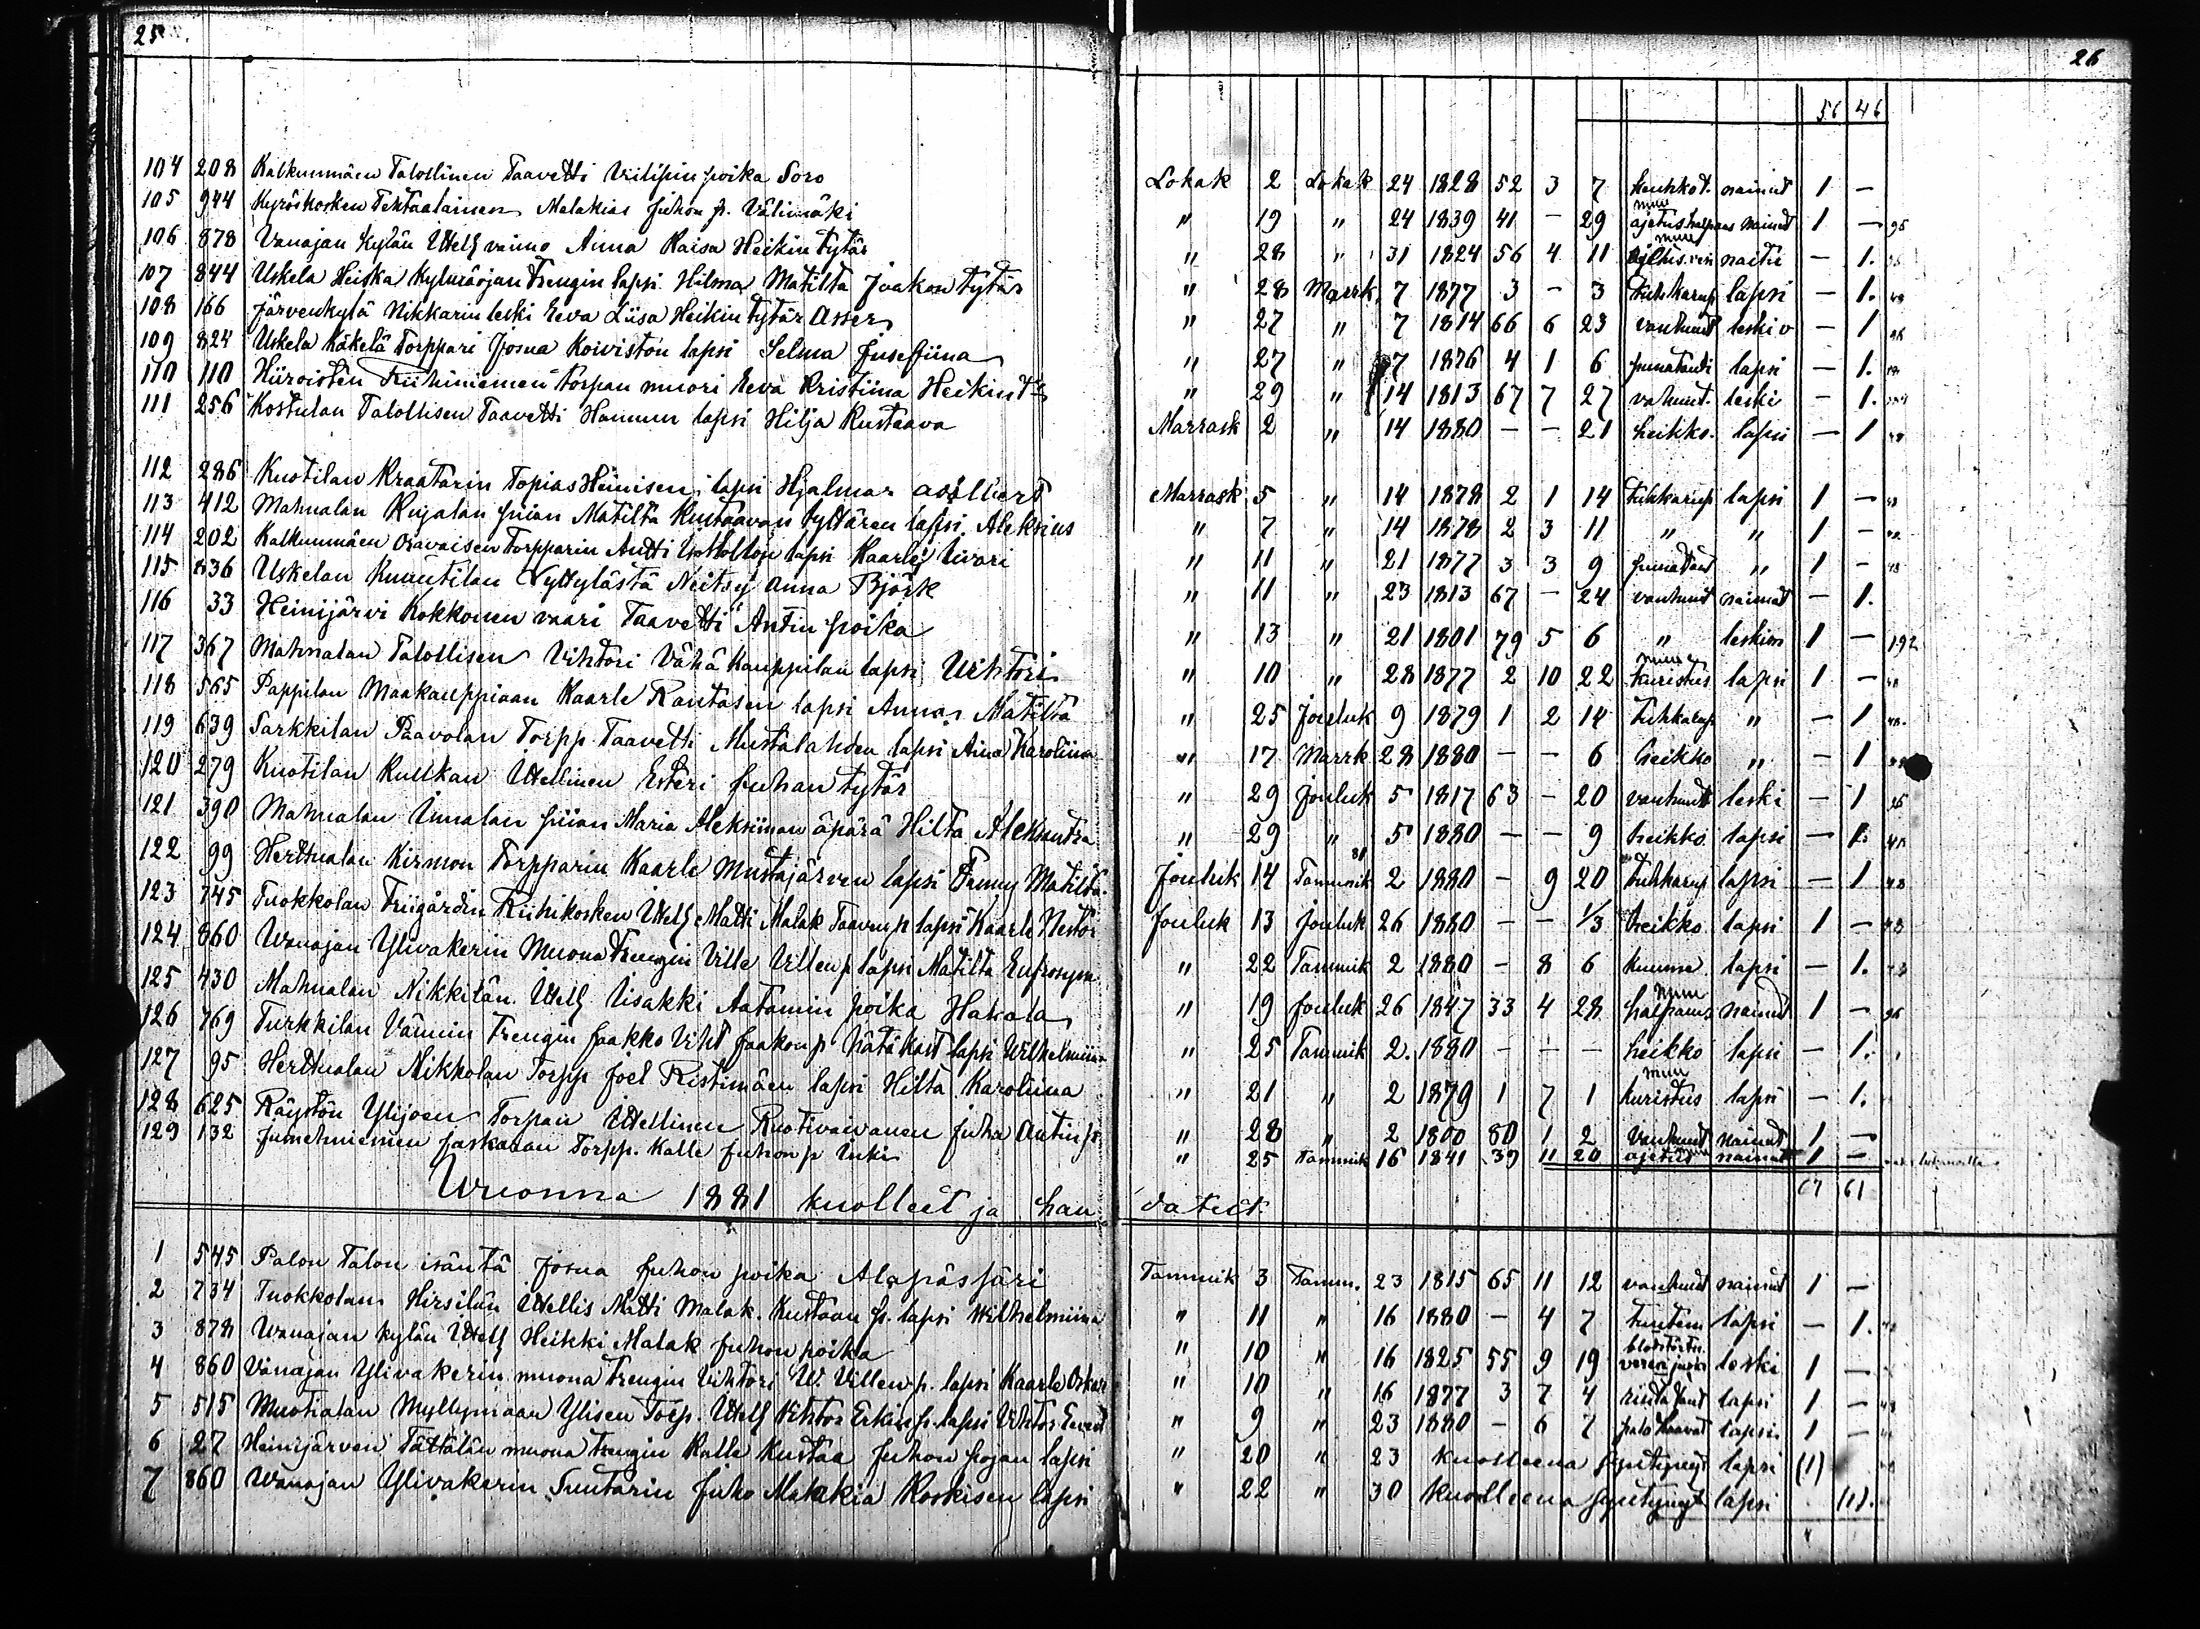 25
26
56 46
104 208 Kalkunmäen Talollinen Taavetti Vilipin poika Soro Lokak 2 Lokak 24 1828 52 3 7 keuhkot. nainut 1 —
105 944 Kyröskosken Tehtaalainen Malakias Juhon p. Välimäki " 19 " 24 1839 41 — 29 nainut 1 — 95
106 878 Vanajan kylän Ittell vaimo Anna Kaisa Heikin tytär " 28 " 31 1824 56 4 11 naitu — 1.
107 844 Uskela Heiska Kylmäojan Trengin lapsi Hilma Matilta Joakon tytär " 28 Marrk. 7 1877 3 — 3 tuhkarup lapsi — 1.
108 166 Järvenkylä Nikkarin leski Eeva Liisa Heikin tytär Asser " 27 " 7 1814 66 6 23 vanhuut leski v — 1
109 824 Uskela Käkelä Torppari Josua Koiviston lapsi Selma Jusefiina " 27 " 7 1876 4 1 6 punatauti lapsi — 1.
110 110 Hiiroisten Riihiniemen torpan muori Eeva Kristiina Heikin t " 29 " 14 1813 67 7 27 vahuut. leski — 1.
111 256 Kostulan Talollisen Taavetti Hannun lapsi Hilja Kustaava Marrask 2 " 14 1880 — — 21 heikko. lapsi — 1
112 286 Kuotilan Kraatarin Topias Heinisen lapsi Hjalmar Marrask 5 " 14 1878 2 1 14 tuhkarup lapsi 1 —
113 412 Mahnalan Kujalan piian Matilta Kustaavan tyttären lapsi Aleksius " 7 " 14 1878 2 3 11 " " 1 —
114 202 Kalkunmäen Oravaisen Torpparin Antti lapsi Kaarle Iivari " 11 " 21 1877 3 3 9 punataut " 1 —
115 836 Uskelan Kuuutilan Neitsy Anna Björk " 11 " 23 1813 67 — 24 vanhuut naimat — 1.
116 33 Heinijärvi Kokkonen vaari Taavetti Antin poika " 13 " 21 1801 79 5 6 " leskim 1 — 192
117 367 Mahnalan Talollisen Vihtori Vähä Kauppilan lapsi Vihtori " 10 " 28 1877 2 10 22 kuristus lapsi 1 —
118 565 Pappilan Maakauppiaan Kaarle Rantasen lapsi Anna Matilta " 25 Jouluk 9 1879 1 2 14 tuhkarup " — 1
119 639 Sarkkilan Paavolan Torpp Taavetti Mustalahden lapsi Aina Karoliina " 17 Marrk 28 1880 — — 6 heikko " — 1
120 279 Kuotilan Kullkan Ittellinen Esteri Juhan tytär " 29 Jouluk 5 1817 63 — 20 vanhuut leski — 1
121 390 Mahnalan Innalan piian Maria Aleksiinan äpärä Hilta Aleksantra " 29 " 5 1880 — — 9 heikko lapsi — 1.
122 99 Herttualan Kirmon Torpparin Kaarle Mustajärven lapsi Fanny Matilta Jouluk 14 Tammik 2 1880 — 9 20 tuhkarup lapsi — 1
123 745 Tuokkolan Friigårdin Riihikosken Ittell Matti Malak Taavin p lapsi Kaarle Nestor Jouluk 13 Jouluk 26 1880 — — 1/3 heikko lapsi 1 —
124 860 Wanajan Ylivakerin Muona Trengin Ville Villen p lapsi Matilta Eufrosyne " 22 Tammik 2 1880 — 8 6 kuume lapsi — 1.
125 430 Mahnalan Nikkilän Ittell Iisakki Aatamin poika Hakala " 19 Jouluk 26 1847 33 4 28 halpaus nainut 1 —
126 769 Turkkilan Vännin Trengin Jaakko Viht Jaakon p lapsi Wilhelmiina " 25 Tammik 2. 1880 — — — heikko lapsi — 1.
127 95 Herttualan Nikkolan Torpp Joel Ristimäen lapsi Hilta Karoliina " 21 " 2 1879 1 7 1 kuristus lapsi — 1.
128 625 Räystön Ylijoen Torpan Ittellinen Ruotivaivanen Juha Antin p. " 28 " 2 1800 80 1 2 vanhuut nainut 1 —
129 132 Jumehniemen Paskalan Torpp. Kalle Juhon p Inki " 25 Tammik 16 1841 39 11 20 ajetus nainut 1 —
67 61
Wuonna 1881 kuolleet ja haudatut
1 545 Palon Talon isäntä Josua Juhon poika Alapässäri Tammik 3 Tamm. 23 1815 65 11 12 vanhuut nainut 1 —
2 734 Tuokkolan Hirsilän Ittellis Matti Malak. Kustaan p. lapsi Wilhelmiina " 11 " 16 1880 — 4 7 tuntem lapsi — 1.
3 878 Wanajan kylän Ittell Heikki Malak Juhon poika " 10 " 16 1825 55 9 19 leski 1 —
4 860 Vanajan Ylivakerin muona Trengin Vihtori W. Villen p. lapsi Kaarle Oskar " 10 " 16 1877 3 7 4 rinta taut lapsi 1 —
5 515 Muotialan Myllymaan Ylisen Torp. Ittell Vihtor Erkin p. lapsi Vihtor Evert " 9 " 23 1880 — 6 7 palo haavat lapsi 1 —
6 27 Heinijärven Tättälän muona trengin Kalle Kustaa Juhon pojan lapsi " 20 " 23 kuolleena syntynyt lapsi (1)
7 860 Wanajan Ylivakerin Suutarin Juho Malakia Koskisen lapsi " 22 " 30 kuolleena syntynyt lapsi (1).